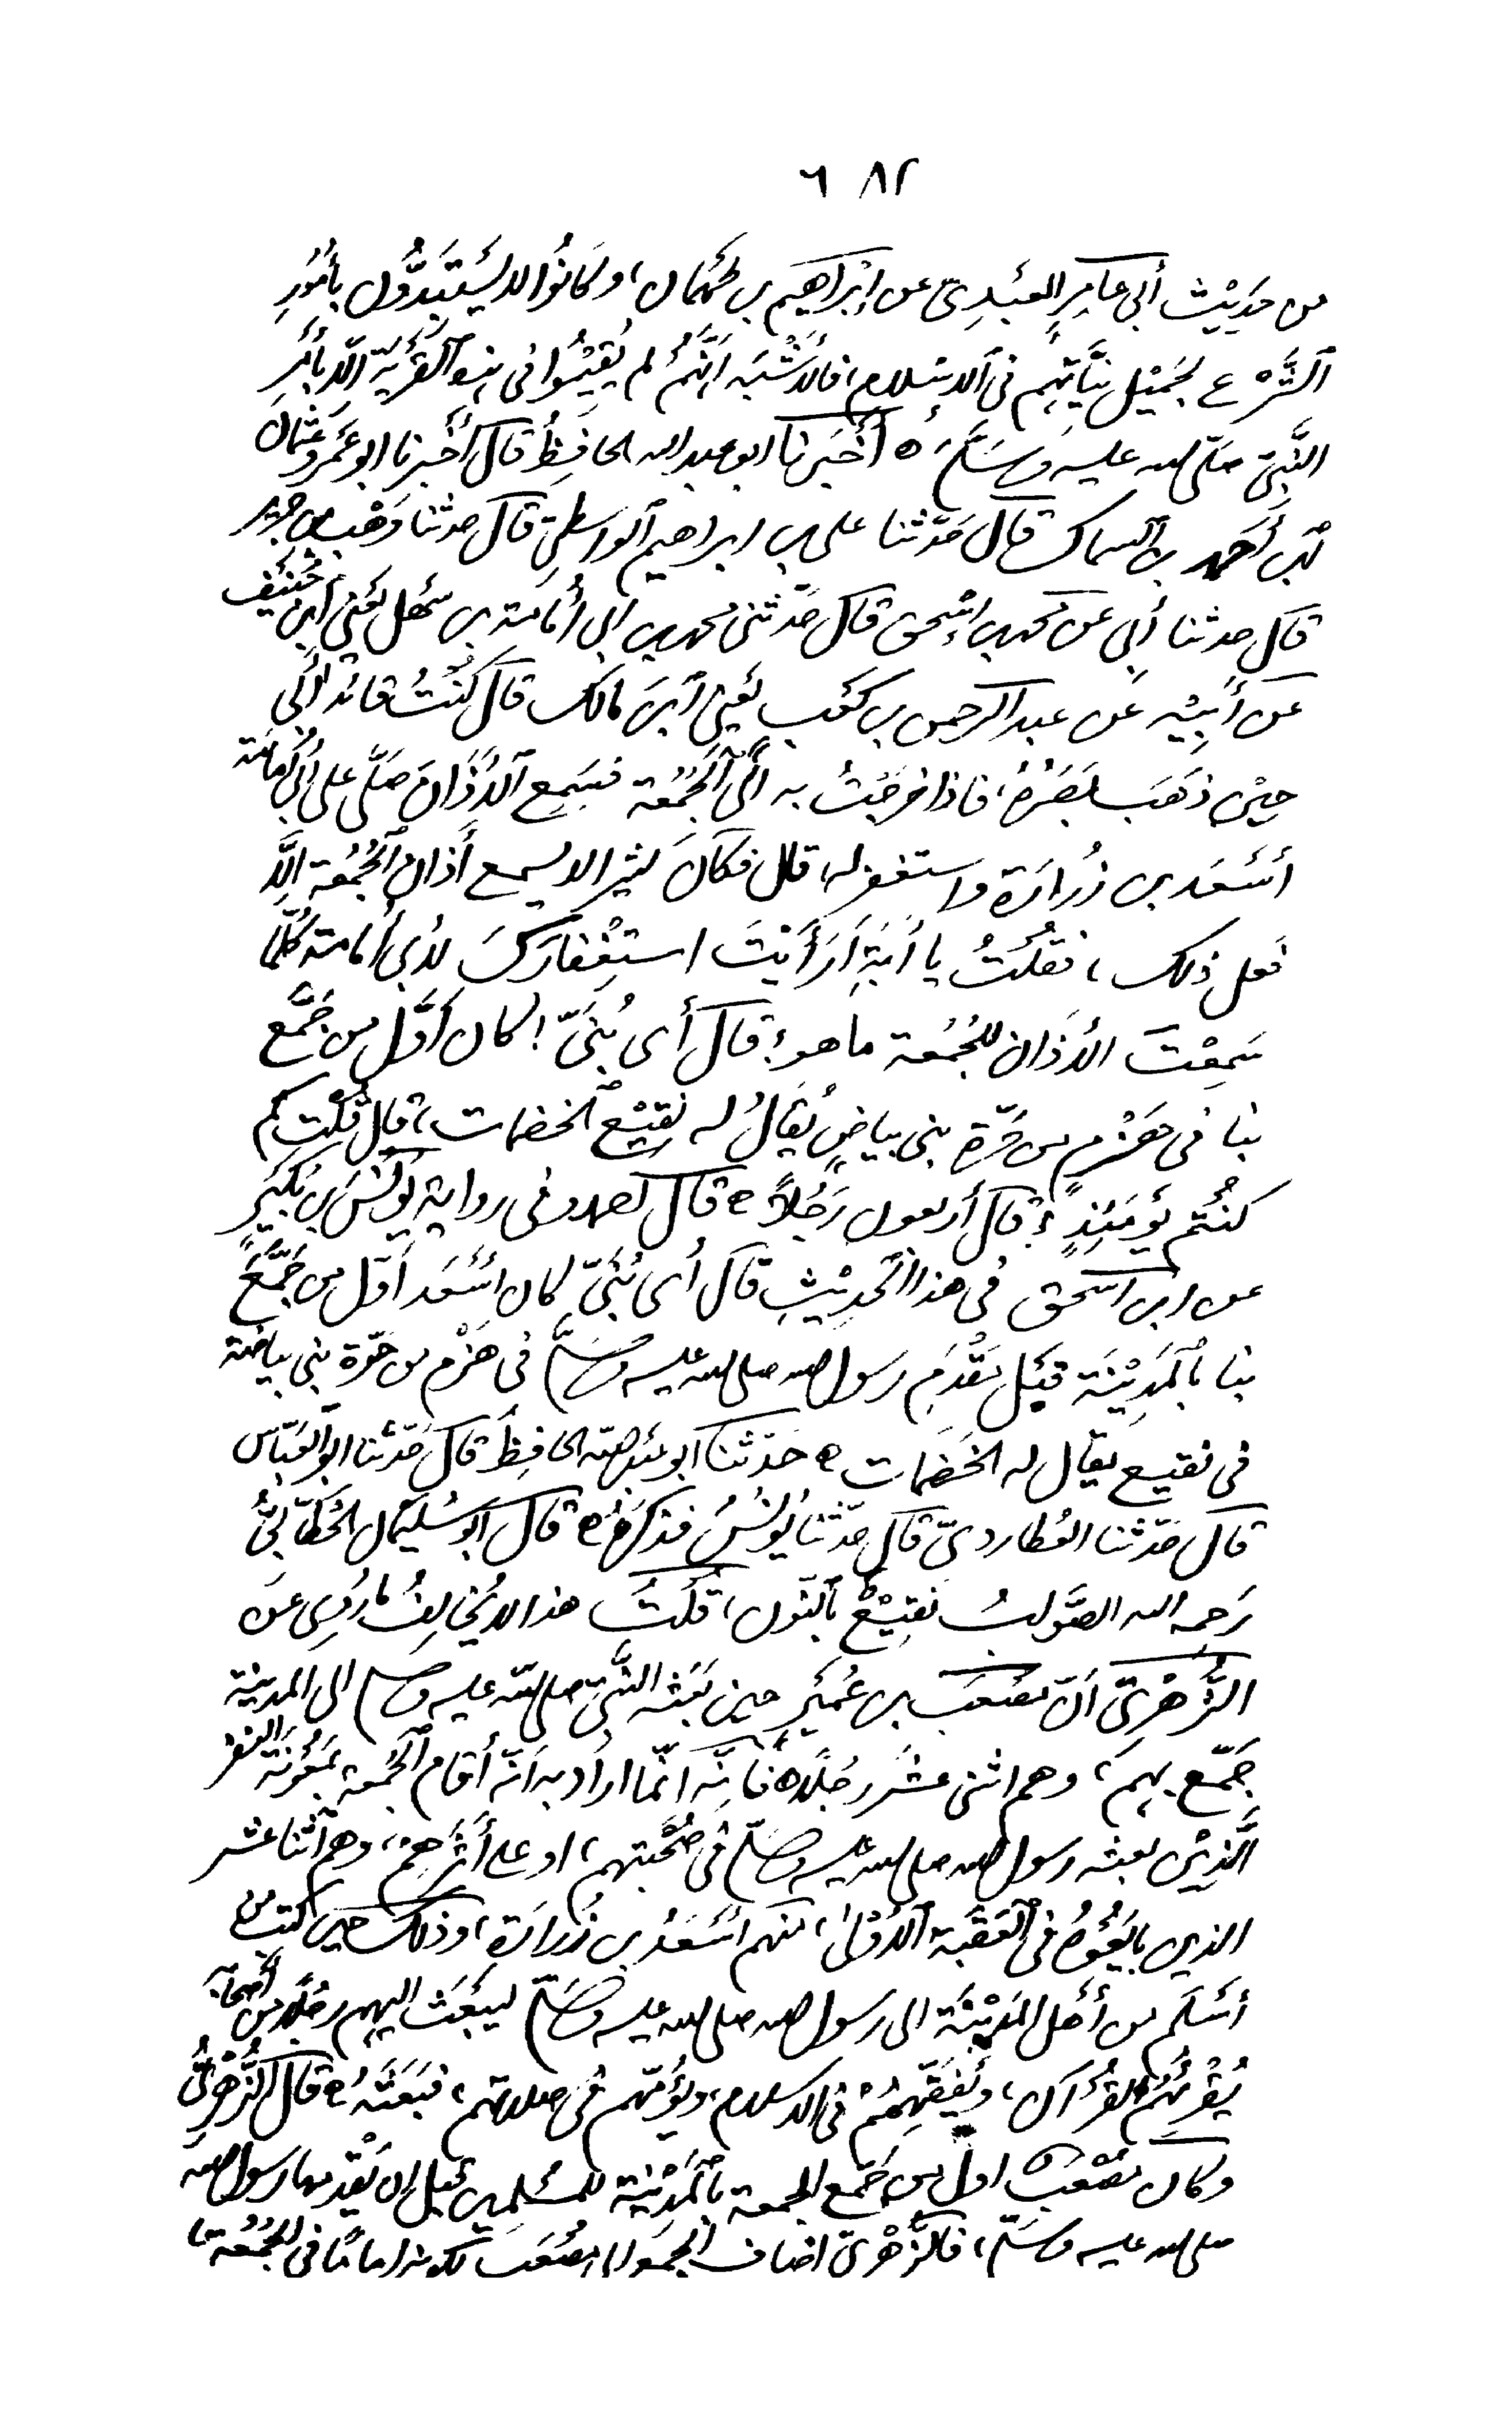 ٦٨٢
من حَدِيْث أبى عَامِرٍ العَبْدِىّ عن إِبْرَاهِيم بن طَهْمَان، وكَانُوا لا يَسْتَبِدُّون بأُمُوْرِ
ٱلشَّرْع لجَمِيْل نِيَّاتِهِم فى ٱلاسْلام، فالأَشْبَه أَنَّهُم لم يُقِيْمُوا فى هذه ٱلقَرْيَة إلّا بأَمْر
النَّبِىّ صلّى الله عليه وسَلَّم، ه أَخْبَرنا ابو عبد الله الحافِظُ قال أَخْبرنا ابو عَمْرو عثمان
بن أَحمد بن ٱلسماك قال حَدّثنا على بن ابراهيم ٱلواسِطى قال حدثنا وَهْب بن جرير
قال حدثنا أبى عن محمد بن إسْحق قال حَدّثنى محمد بن ابى أُمَامَة بن سَهْل يَعْنِى ٱبن حُنَيْف
عن أَبِيْه عَن عبد الرحمن بن كَعْب يَعْنِى ٱبْنَ مالك قال كُنْتُ قائد أَبى
حِيْن ذَهَبَ بَصَرُهُ، فاذا خرجْتُ به الَى ٱلجُمُعَة فسَمِع ٱلأَذَانَ صَلَّى على أَبى أُمامَة
أَسْعَد بن زُرارَة واستغفر له، قال فكان كثيرا لا يسمع أَذانَ ٱلجُمُعَة الَّا
فَعل ذلك، فقُلْتُ يا أَبَةِ أَرَأَيْتَ استِغْفارَكَ لأَبى أُمامة كُلَّما
سَمِعْتَ الأَذَان للجُمُعَة ما هو؟ قال أى بُنَىّ! كان أَوَّل من جَمَّع
بنا فى هَزْمٍ من حَرّة بنى بياضٍ يُقَالُ له نَقِيْع ٱلخَضمات، قال قُلْتُ كم
كنْتُم يَوْمَئِذٍ؟ قال أربعون رَجُلاً ه قال احمد وفى رواية يُوْنُسَ بن بُكَيْرٍ
عن ابن اسحق فى هذا ٱلحَدِيْثِ قال أى بُنَىّ كان اسْعَد أَوّل من جَمَّعَ
بنا بٱلمَدِيْنَة قَبْل مَقْدَمِ رسول الله صلى الله عليه وسلَّم فى هَزْم من حَرّة بنى بياضة
فى نقيع يُقال له الخَضَمات ه حَدّثنا ابو عبد الله الحافِظُ قال حَدّثنا ابو ٱلعَبّاس
قال حَدّثنا العُطاردىّ قال حَدّثنا يُوْنُسُ فذكرَهُ ه قال ابو سُلَيْمان الخَطّابِىُّ
رَحِمه الله الصَّوابُ نَقِيْعٌ بٱلنّون، قُلْتُ هذا لا يُخَالِفُ ما رُوِى عَن
الزُّهْرِىّ أَنّ مُصْعَبَ بن عُمَيْرٍ حين بَعَثه النَّبِىّ صلى الله عليه وسلم الى المدينة
جَمّع بهم، وهم اثنى عَشَر رجُلاً ه فإنّه انّما اراد به أَنّه أَقام ٱلجُمعة بمَعُوْنَة النفر
ٱلَّذِيْن بعثه رسول الله صلى الله عليه وسلّم فى صُحْبَتِهم، او على أَثَرِهِمْ، وهم ٱثنا عشر
الذين بايَعُوْهُ فى ٱلعَقَبَة ٱلأُوْلٰى، منهم أَسْعَدُ بن زُرَارَةَ، وذلك حين كتب من
أَسْلَم من أَهل المَدِيْنَة الى رسول الله صلى الله عليه وسلّم ليبْعَث اليهم رجُلاً من أَصحابه
يُقْرِئهُم القُرآن، ويُفَقّهِهُمْ فى الاسلام، ويَؤُمّهم فى صلاتهم، فبَعَثَهُ ه قال الزُّهْرِىُّ
وكان مُصْعَبٌ اول من جَمّع الجمعة بٱلمَدِيْنة للمسْلِمين قبل ان يَقْدمها رسول الله
صلى الله عليه وسَلّم، فالزُّهْرِىّ اضاف الجمعة الى مُصْعَب لكونه اماماً فى الجُمُعَة،